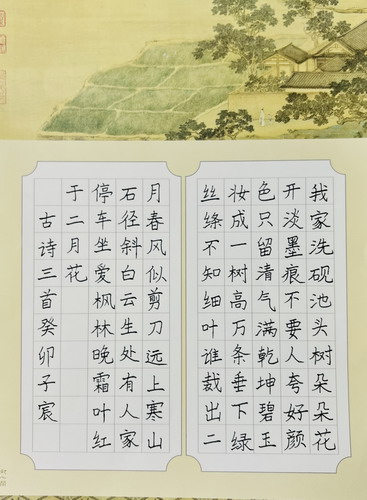 我家洗砚池头树朵朵花
开淡墨痕不要人夸好颜
色只留清气满乾坤碧玉
妆成一树高万条垂下绿
丝绦不知细叶谁裁出二
月春风似剪刀远上寒山
石径斜白云生处有人家
停车坐爱枫林晚霜叶红
于二月花
古诗三首癸卯子宸